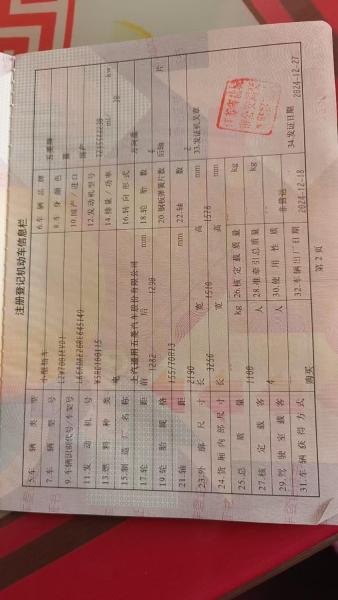 注册登记机动车信息栏
5.车辆类型 小型轿车 6.车辆品牌 五菱牌
7.车辆型号 8.车身颜色
9.车辆识别代号/车架号 10.国产/进口 国产
11.发动机号 12.发动机型号
13.燃料种类 电 14.排量/功率 ml/ 30 kw
15.制造厂名称 上汽通用五菱汽车股份有限公司 16.转向形式 方向盘
17.轮距 前 1282 后 1290 mm 18.轮胎数 4
19.轮胎规格 155/70R13 20.钢板弹簧片数 后轴 片
21.轴距 2190 mm 22.轴数 2
23.外廓尺寸 长 3256 宽 1510 高 1578 mm 33.发证机关章
24.货厢内部尺寸 长 宽 高 mm
25.总质量 1180 kg 26.核定载质量 kg
27.核定载客 4 人 28.准牵引总质量 kg
29.驾驶室载客 人 30.使用性质 非营运
31.车辆获得方式 购买 32.车辆出厂日期 2024-12-18 34.发证日期 2024-12-27
第2页